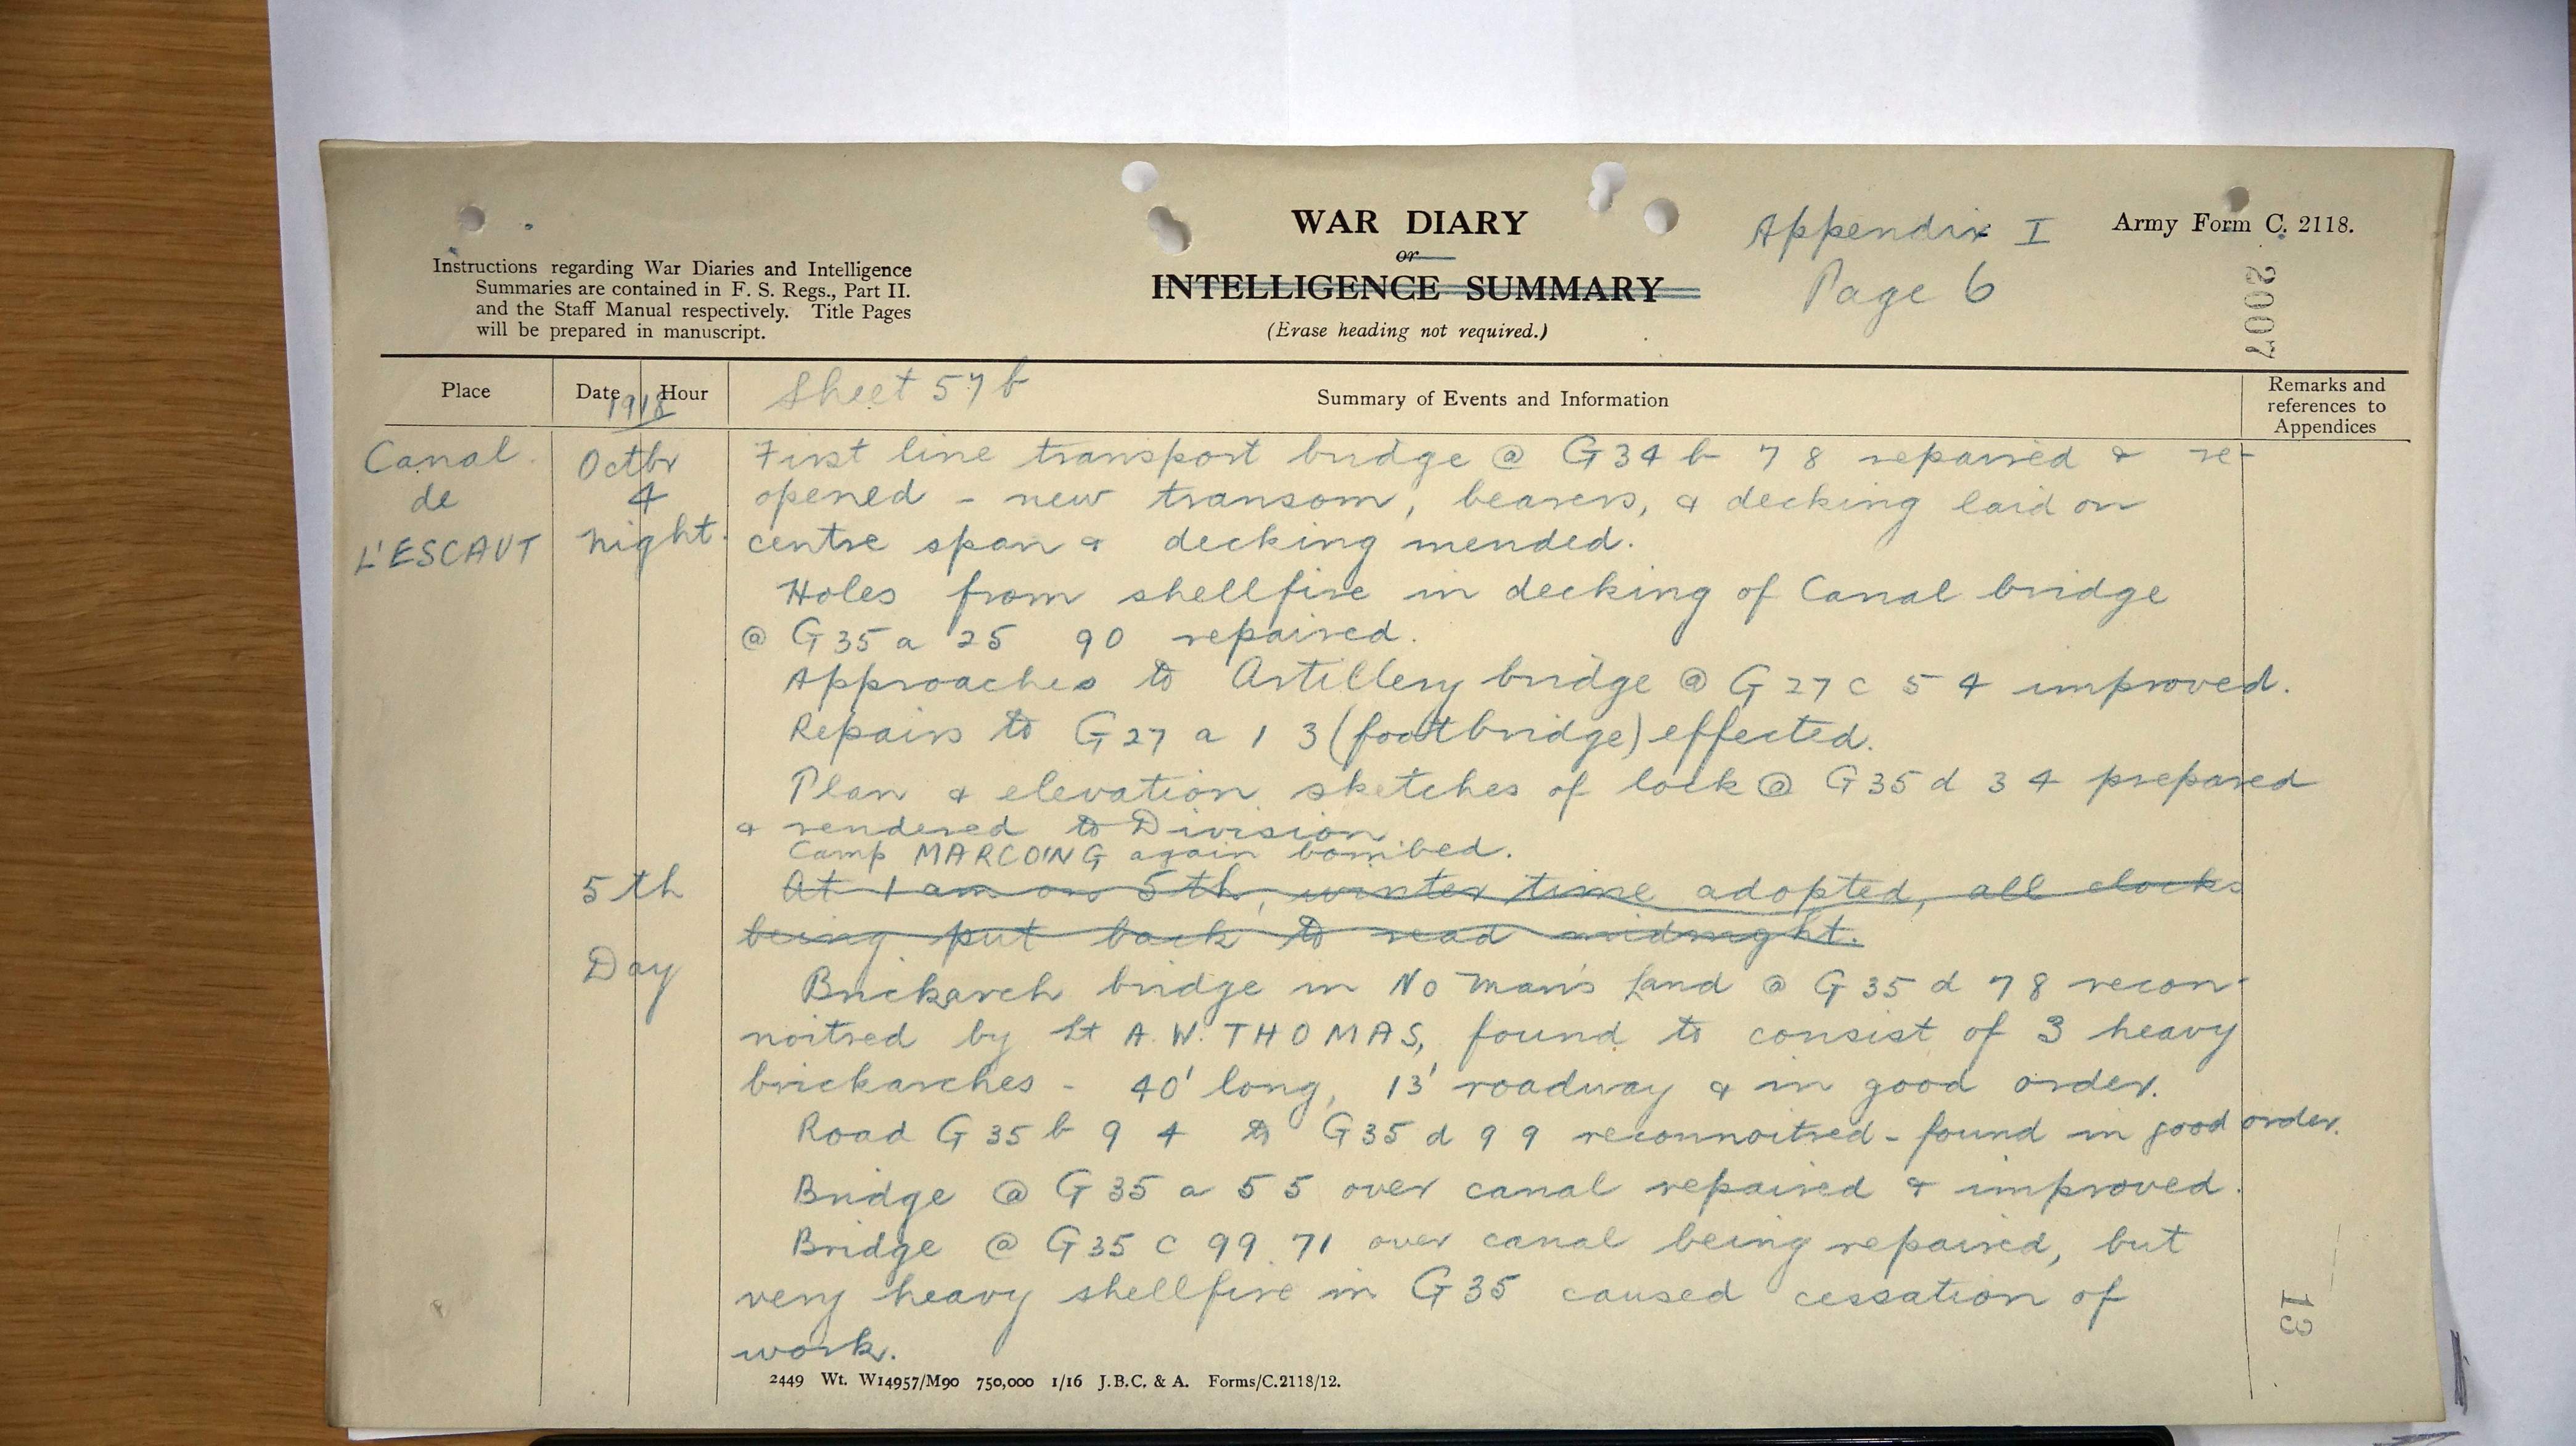 WAR DIARY
or
INTELLIGENCE SUMMARY
(Erase heading not required.)
Appendix I
Page 6
Army Form C. 2118.
2007
Instructions regarding War Diaries and Intelligence
Summaries are contained in F. S. Regs., Part II.
and the Staff Manual respectively. Title Pages
will be prepared in manuscript.
Place
Date
Hour
1918
Sheet 57b
Summary of Events and Information
Remarks and
references to
Appendices
Canal
de
L'ESCAUT
Octbr
4
night.
First line transport bridge @ G34 b 7 8 repaired & re-
opened - new transom, bearers, & decking laid on
centre span & decking mended.
Holes from shellfire in decking of Canal bridge
@ G35 a 25 90 repaired.
Approaches to Artillery bridge @ G 27 c 5 4 improved.
Repairs to G27 a 1 3 (footbridge) effected.
Plan & elevation sketches of lock @ G35 d 3 4 prepared
& rendered to Division
Camp MARCOING again bombed.
5th
At 1 am on 5th, winter time adopted, all clocks
being put back to read midnight.
Day
Brickarch bridge in No Man's Land @ G 35 d 7 8 recon-
noitred by Lt A. W. THOMAS, found to consist of 3 heavy
brickarches - 40' long, 13' roadway & in good order.
Road G 35 b 9 4 to G35 d 9 9 reconnoitred - found in good order.
Bridge @ G 35 a 5 5 over canal repaired & improved.
Bridge @ G35 c 99 71 over canal being repaired, but
very heavy shellfire in G35 caused cessation of
work.
13
2449 Wt. W14957/M90 750,000 1/16 J.B.C. & A. Forms/C.2118/12.